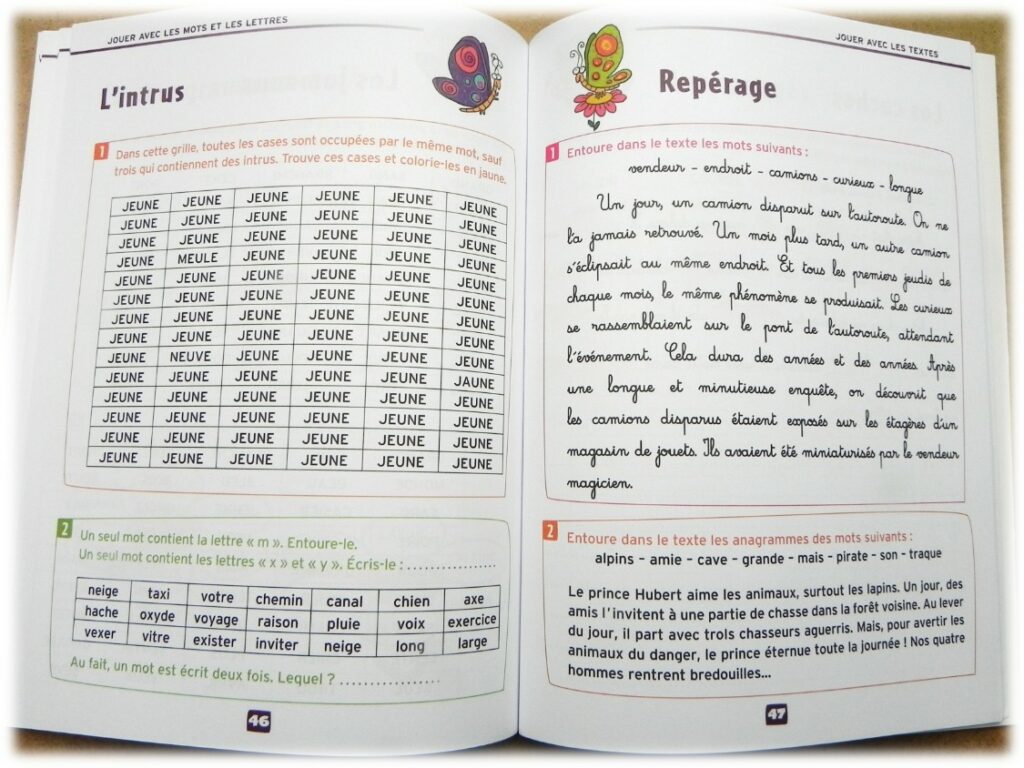 JOUER AVEC LES MOTS ET LES LETTRES
L'intrus
1 Dans cette grille, toutes les cases sont occupées par le même mot, sauf
trois qui contiennent des intrus. Trouve ces cases et colorie-les en jaune.
JEUNE JEUNE JEUNE JEUNE JEUNE JEUNE
JEUNE JEUNE JEUNE JEUNE JEUNE JEUNE
JEUNE JEUNE JEUNE JEUNE JEUNE JEUNE
JEUNE MEULE JEUNE JEUNE JEUNE JEUNE
JEUNE JEUNE JEUNE JEUNE JEUNE JEUNE
JEUNE JEUNE JEUNE JEUNE JEUNE JEUNE
JEUNE JEUNE JEUNE JEUNE JEUNE JEUNE
JEUNE JEUNE JEUNE JEUNE JEUNE JEUNE
JEUNE NEUVE JEUNE JEUNE JEUNE JEUNE
JEUNE JEUNE JEUNE JEUNE JEUNE JAUNE
JEUNE JEUNE JEUNE JEUNE JEUNE JEUNE
JEUNE JEUNE JEUNE JEUNE JEUNE JEUNE
JEUNE JEUNE JEUNE JEUNE JEUNE JEUNE
JEUNE JEUNE JEUNE JEUNE JEUNE JEUNE
2 Un seul mot contient la lettre « m ». Entoure-le.
Un seul mot contient les lettres « x » et « y ». Écris-le : .................
neige taxi votre chemin canal chien axe
hache oxyde voyage raison pluie voix exercice
vexer vitre exister inviter neige long large
Au fait, un mot est écrit deux fois. Lequel ? ...................
46
JOUER AVEC LES TEXTES
Repérage
1 Entoure dans le texte les mots suivants :
vendeur - endroit - camions - curieux - longue
Un jour, un camion disparut sur l'autoroute. On ne
l'a jamais retrouvé. Un mois plus tard, un autre camion
s'éclipsait au même endroit. Et tous les premiers jeudis de
chaque mois, le même phénomène se produisait. Les curieux
se rassemblaient sur le pont de l'autoroute, attendant
l'événement. Cela dura des années et des années. Après
une longue et minutieuse enquête, on découvrit que
les camions disparus étaient exposés sur les étagères d'un
magasin de jouets. Ils avaient été miniaturisés par le vendeur
magicien.
2 Entoure dans le texte les anagrammes des mots suivants :
alpins - amie - cave - grande - mais - pirate - son - traque
Le prince Hubert aime les animaux, surtout les lapins. Un jour, des
amis l'invitent à une partie de chasse dans la forêt voisine. Au lever
du jour, il part avec trois chasseurs aguerris. Mais, pour avertir les
animaux du danger, le prince éternue toute la journée ! Nos quatre
hommes rentrent bredouilles...
47